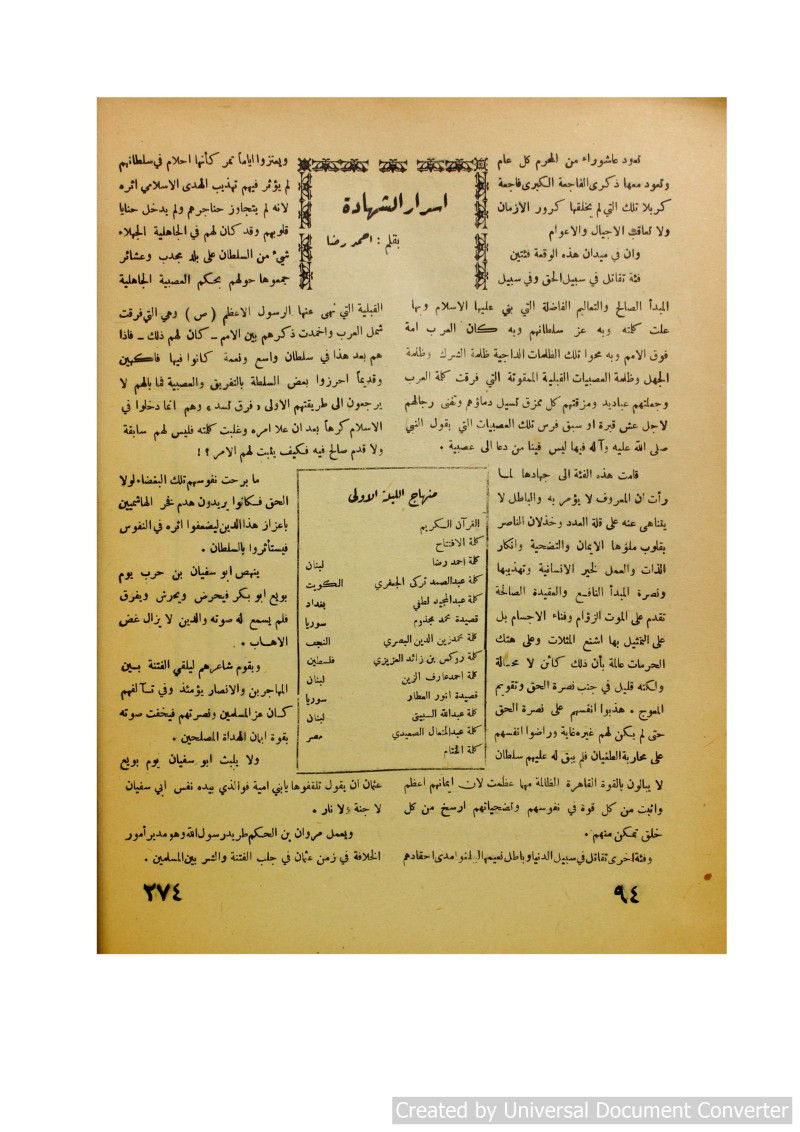 اسرار الشهادة
بقلم : احمد رضا
تعود عاشوراء من المحرم كل عام
وتعود معها ذكرى الفاجعة الكبرى فاجعة
كربلا تلك التي لم يخلقها كرور الازمان
ولا تعاقب الاجيال والاعوام
وان في ميدان هذه الوقعة فئتين
فئة تقاتل في سبيل الحق وفي سبيل
المبدأ الصالح والتعاليم الفاضلة التي بني عليها الاسلام وبها
علت كلمته وبه عز سلطانهم وبه كان العرب امة
فوق الامم وبه محوا تلك الظلمات الداجية ظلمة الشرك وظلمة
الجهل وظلمة العصبيات القبلية الممقوتة التي فرقت كلمة العرب
وجعلتهم عباديد ومزقتهم كل ممزق تسيل دماؤهم وتفنى رجالهم
لاجل عش قبرة او سبق فرس تلك العصبيات التي يقول النبي
صلى الله عليه وآله فيها ليس فينا من دعا الى عصبية .
قامت هذه الفئة الى جهادها لما
رأت ان المعروف لا يؤمر به والباطل لا
يتناهى عنه على قلة العدد وخذلان الناصر
بقلوب ملؤها الايمان والتضحية وانكار
الذات والعمل لخير الانسانية وتهذيبها
ونصرة المبدأ النافع والعقيدة الصالحة
تقدم على الموت الزؤام وفناء الاجسام بل
على التمثيل بها اشنع المثلات وعلى هتك
الحرمات عالمة بأن ذلك كائن لا محالة
ولكنه قليل في جنب نصرة الحق وتقويم
المعوج . هذبوا انفسهم على نصرة الحق
حتى لم يكن لهم غيره غاية وراضوا انفسهم
على محاربة الطغيان فلم يبق له عليهم سلطان
لا يبالون بالقوة القاهرة الظالمة مهما عظمت لان ايمانهم اعظم
واثبت من كل قوة في نفوسهم وتضحياتهم ارسخ من كل
خلق تمكن منهم .
وفئة اخرى تقاتل في سبيل الدنيا وباطل نعيمها مدى احقادهم
ويعتزوا اياماً تمر كأنها احلام في سلطانهم
لم يؤثر فيهم تهذيب الهدى الاسلامي اثره
لانه لم يتجاوز حناجرهم ولم يدخل حنايا
قلوبهم وقد كان لهم في الجاهلية الجهلاء
شيء من السلطان على بلد مجدب وعشائر
جمعوها حولهم بحكم العصبية الجاهلية
القبلية التي نهى عنها الرسول الاعظم ( ص ) وهي التي فرقت
شمل العرب واخمدت ذكرهم بين الامم ـ كان لهم ذلك ـ فاذا
هم بعد هذا في سلطان واسع ونعمة كانوا فيها فاكهين
وقديماً احرزوا بعض السلطة بالتفريق والعصبية فما بالهم لا
يرجعون الى طريقتهم الاولى « فرق تسد » وهم انما دخلوا في
الاسلام كرهاً بعد ان علا امره وغلبت كلمته فليس لهم سابقة
ولا قدم صالح فيه فكيف يثبت لهم الامر ؟ !
ما برحت نفوسهم تلك البغضاء لولا
الحق فكانوا يريدون هدم فخر الهاشميين
باعزاز هذا الدين ليضعفوا اثره في النفوس
فيستأثروا بالسلطان .
ينهض ابو سفيان بن حرب يوم
بويع ابو بكر فيحرض ويحرش ويفرق
فلم يسمع له صوته والدين لا يزال غض
الاهاب .
ويقوم شاعرهم ليلقي الفتنة بين
المهاجرين والانصار يومئذ وفي تآلفهم
كان عز المسلمين ونصرتهم فيخفت صوته
بقوة ايمان الهداة المصلحين .
ولا يلبث ابو سفيان يوم بويع
عثمان ان يقول تلقفوها يابني امية فوالذي بيده نفس ابي سفيان
لا جنة ولا نار .
ويعمل مروان بن الحكم طريد رسول الله وهو مدير أمور
الخلافة في زمن عثمان في جلب الفتنة والشر بين المسلمين .
منهاج الليلة الاولى
القرآن الكريم
كلمة الافتتاح
كلمة احمد رضا لبنان
كلمة عبدالصمد تركي الجعفري الكويت
كلمة عبدالمجيد لطفي بغداد
قصيدة محمد مجذوم سوريا
كلمة محمد زين الدين البصري النجف
كلمة روكس بن زائد العزيزي فلسطين
كلمة احمد عارف الزين لبنان
قصيدة انور العطار سوريا
كلمة عبدالله السبيتي لبنان
كلمة عبدالمتعال الصعيدي مصر
كلمة الختام
٩٤
٣٧٤
Created by Universal Document Converter